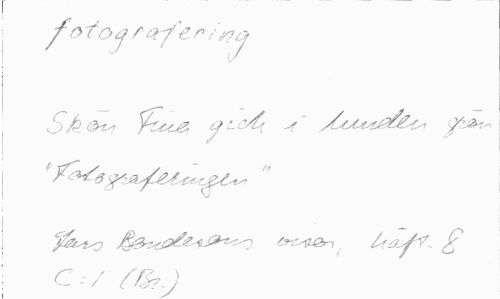 fotografering
Skön Fina gick i lunden grön
"Fotograferingen"
Lars Bondesons visor, häft. 8
C:1 (Br.)